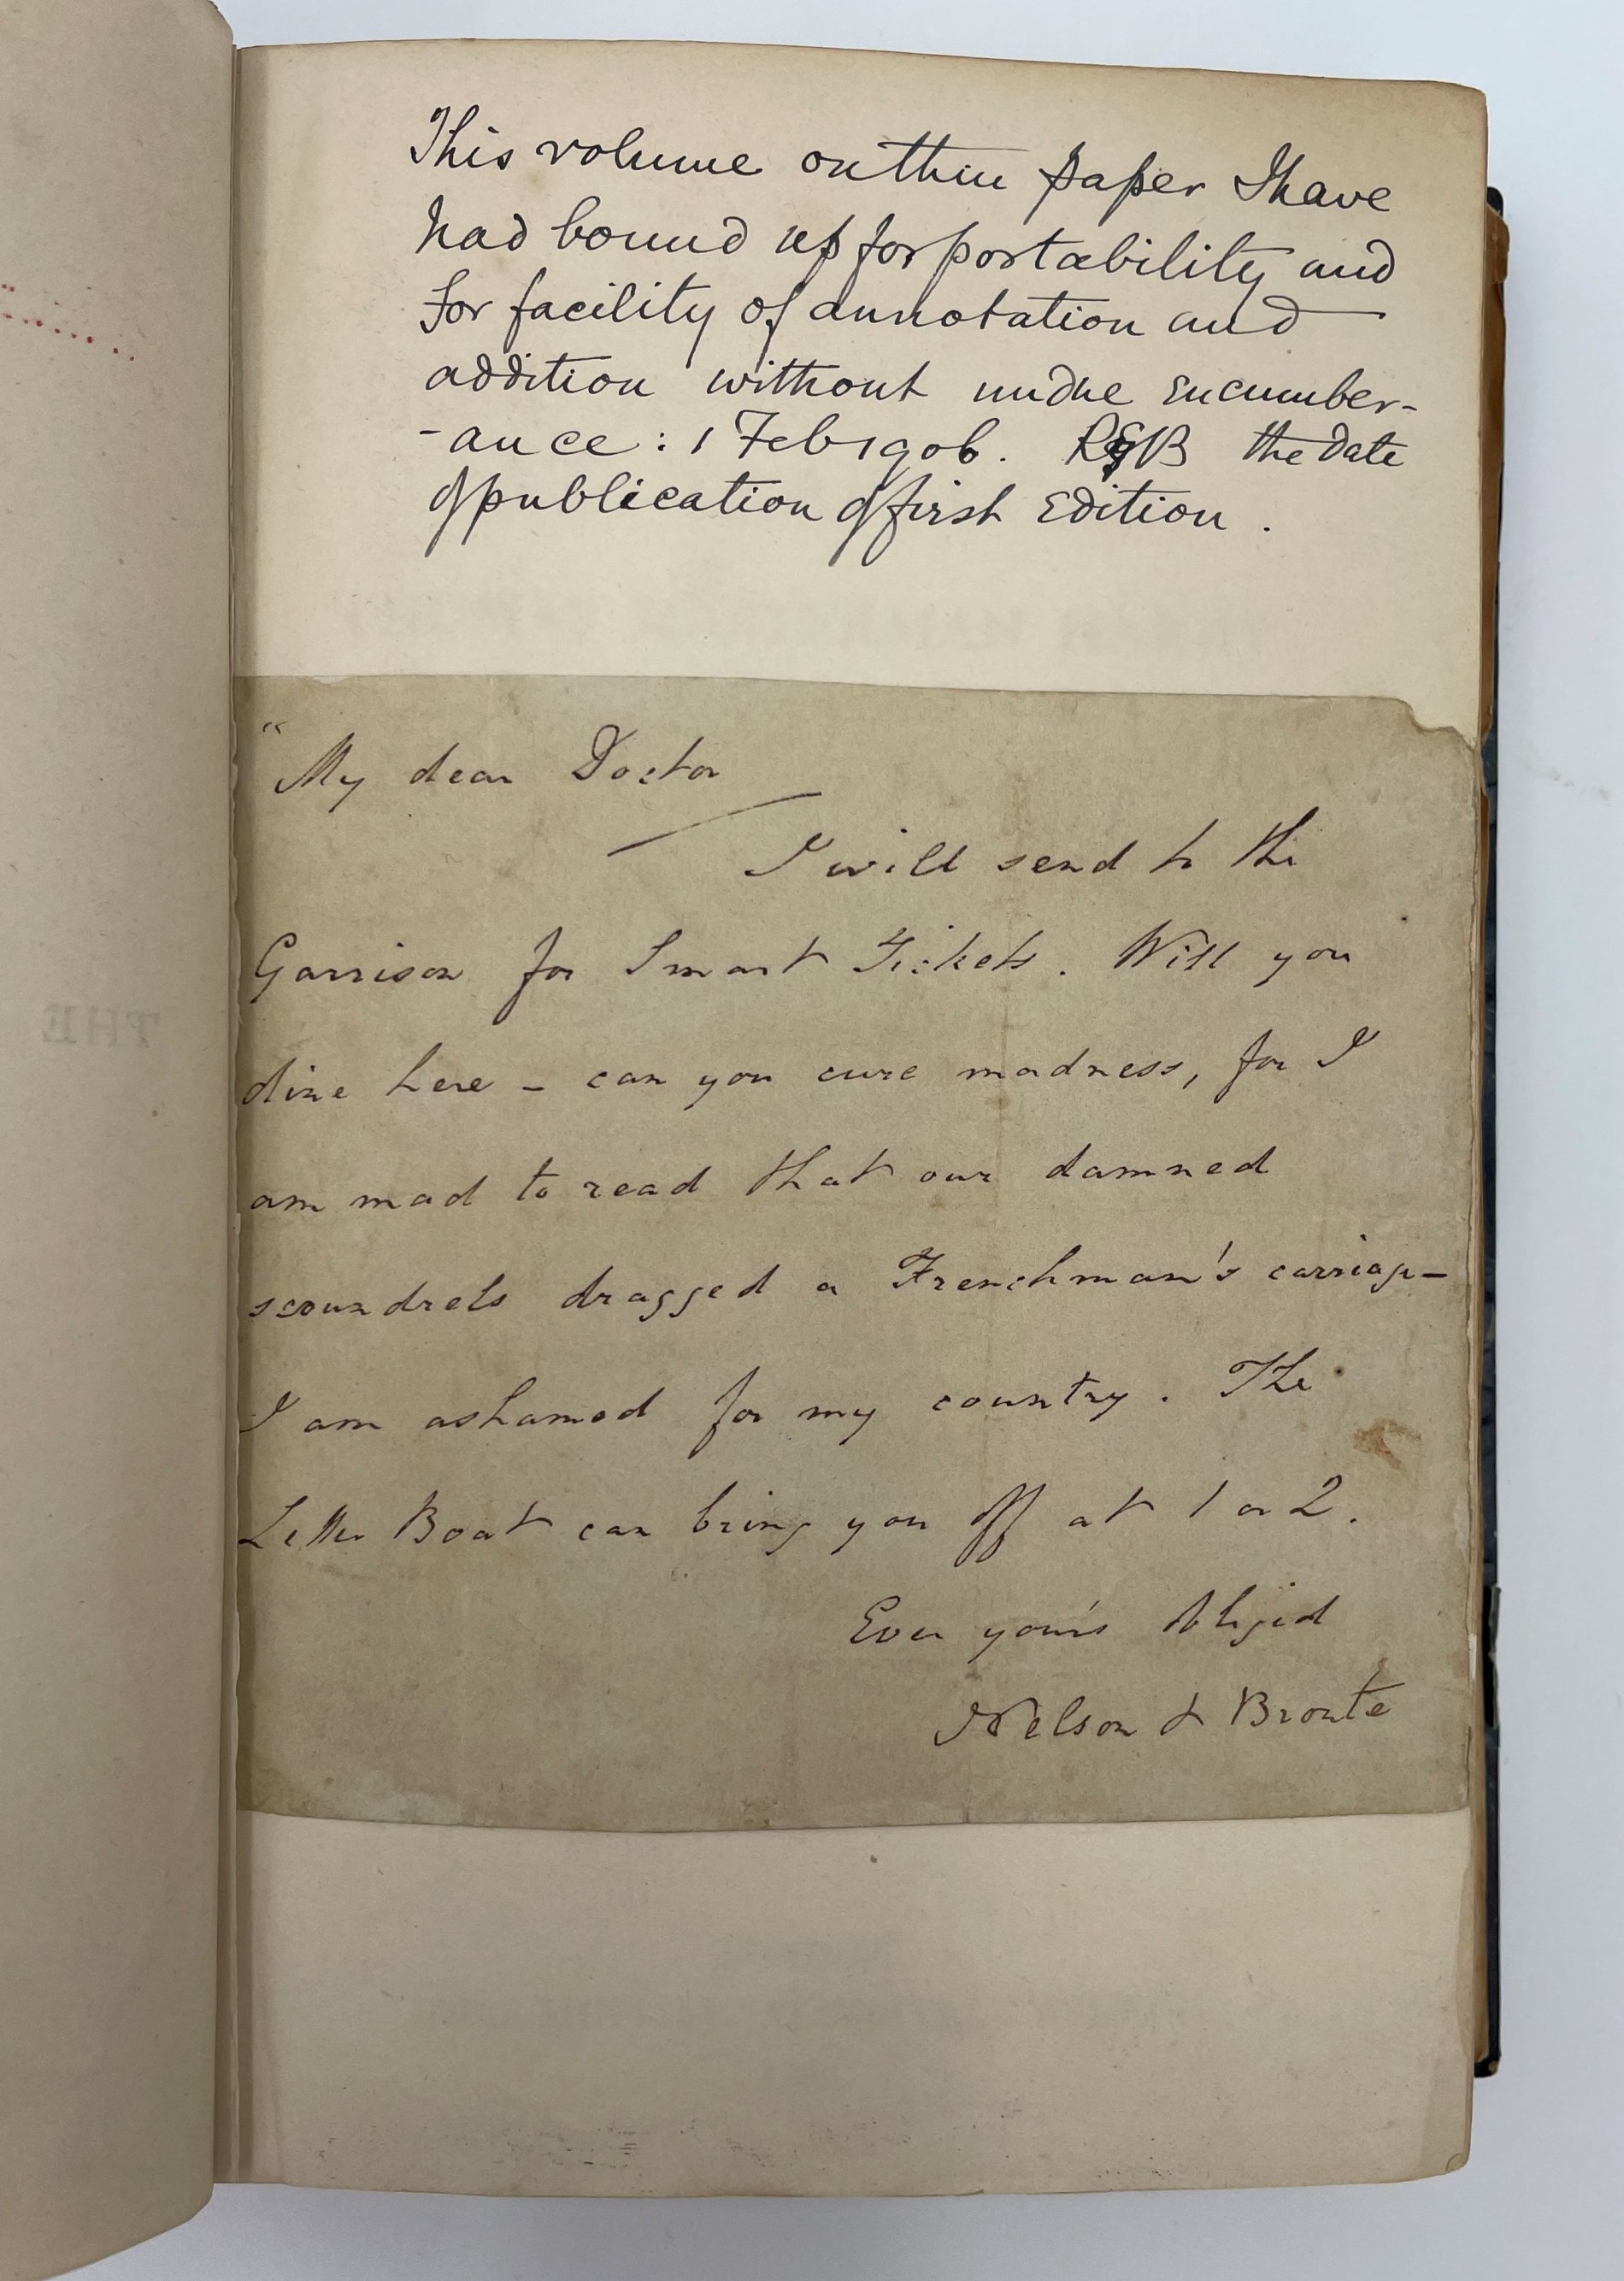 This volume on thin paper I have
had bound up for portability and
for facility of annotation and
addition without undue encumber-
-ance : 1 Feb 1906. the date
of publication of first Edition .
THE
"My dear Doctor
I will send to the
Garrison for Smart Tickets. Will you
dine here - can you cure madness, for I
am mad to read that our damned
scoundrels dragged a Frenchman's carriage-
I am ashamed for my country. The
Letter Boat can bring you off at 1 or 2.
Ever your's obliged
Nelson & Bronte